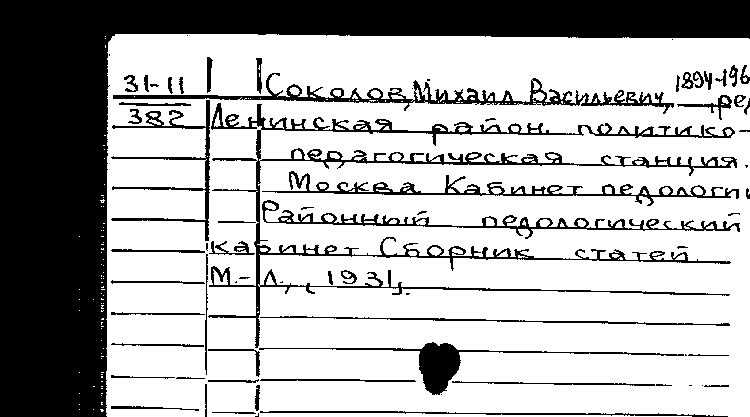 31-11 Соколов, Михаил Васильевич, 1894-196 ред
382 Ленинская район. политико-
педагогическая станция.
Москва Кабинет педологии
— Районный педологический
кабинет Сборник статей
М.-Л., [1931].